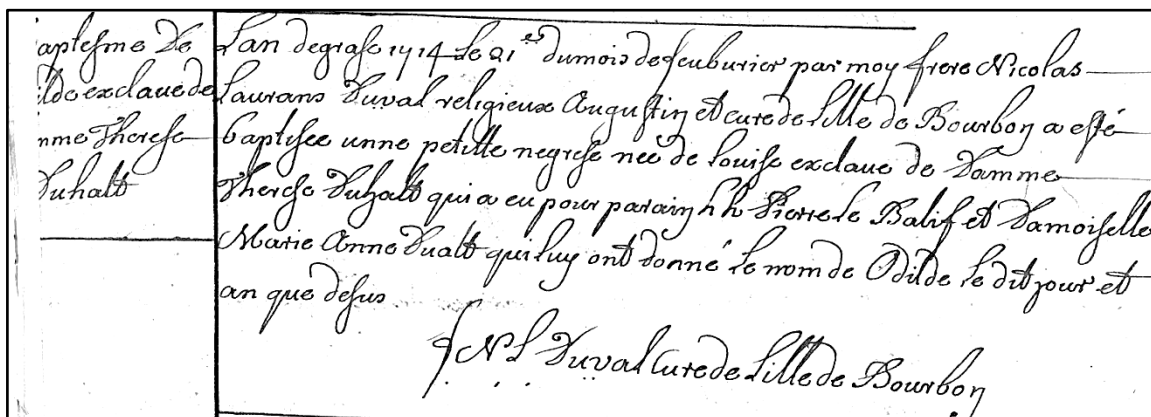 aptesme De
ilde exclave de
mme Therese
Duhalt
Lan degrase 1714 le 21es dumois defeuburier par moy frere Nicolas
Laurans Duval religieux Augustin et cure de Lille de Bourbon a esté
baptisée unne petitte negrese neé de Louise exclave de Damme
Therese Duhalt qui a eu pour parain hh Pierre le Balif et Damoiselle
Marie Anne Dualt qui luy ont donné le nom de Odilde le dit jour et
an que desus
f N L Duval Cure de Lille de Bourbon